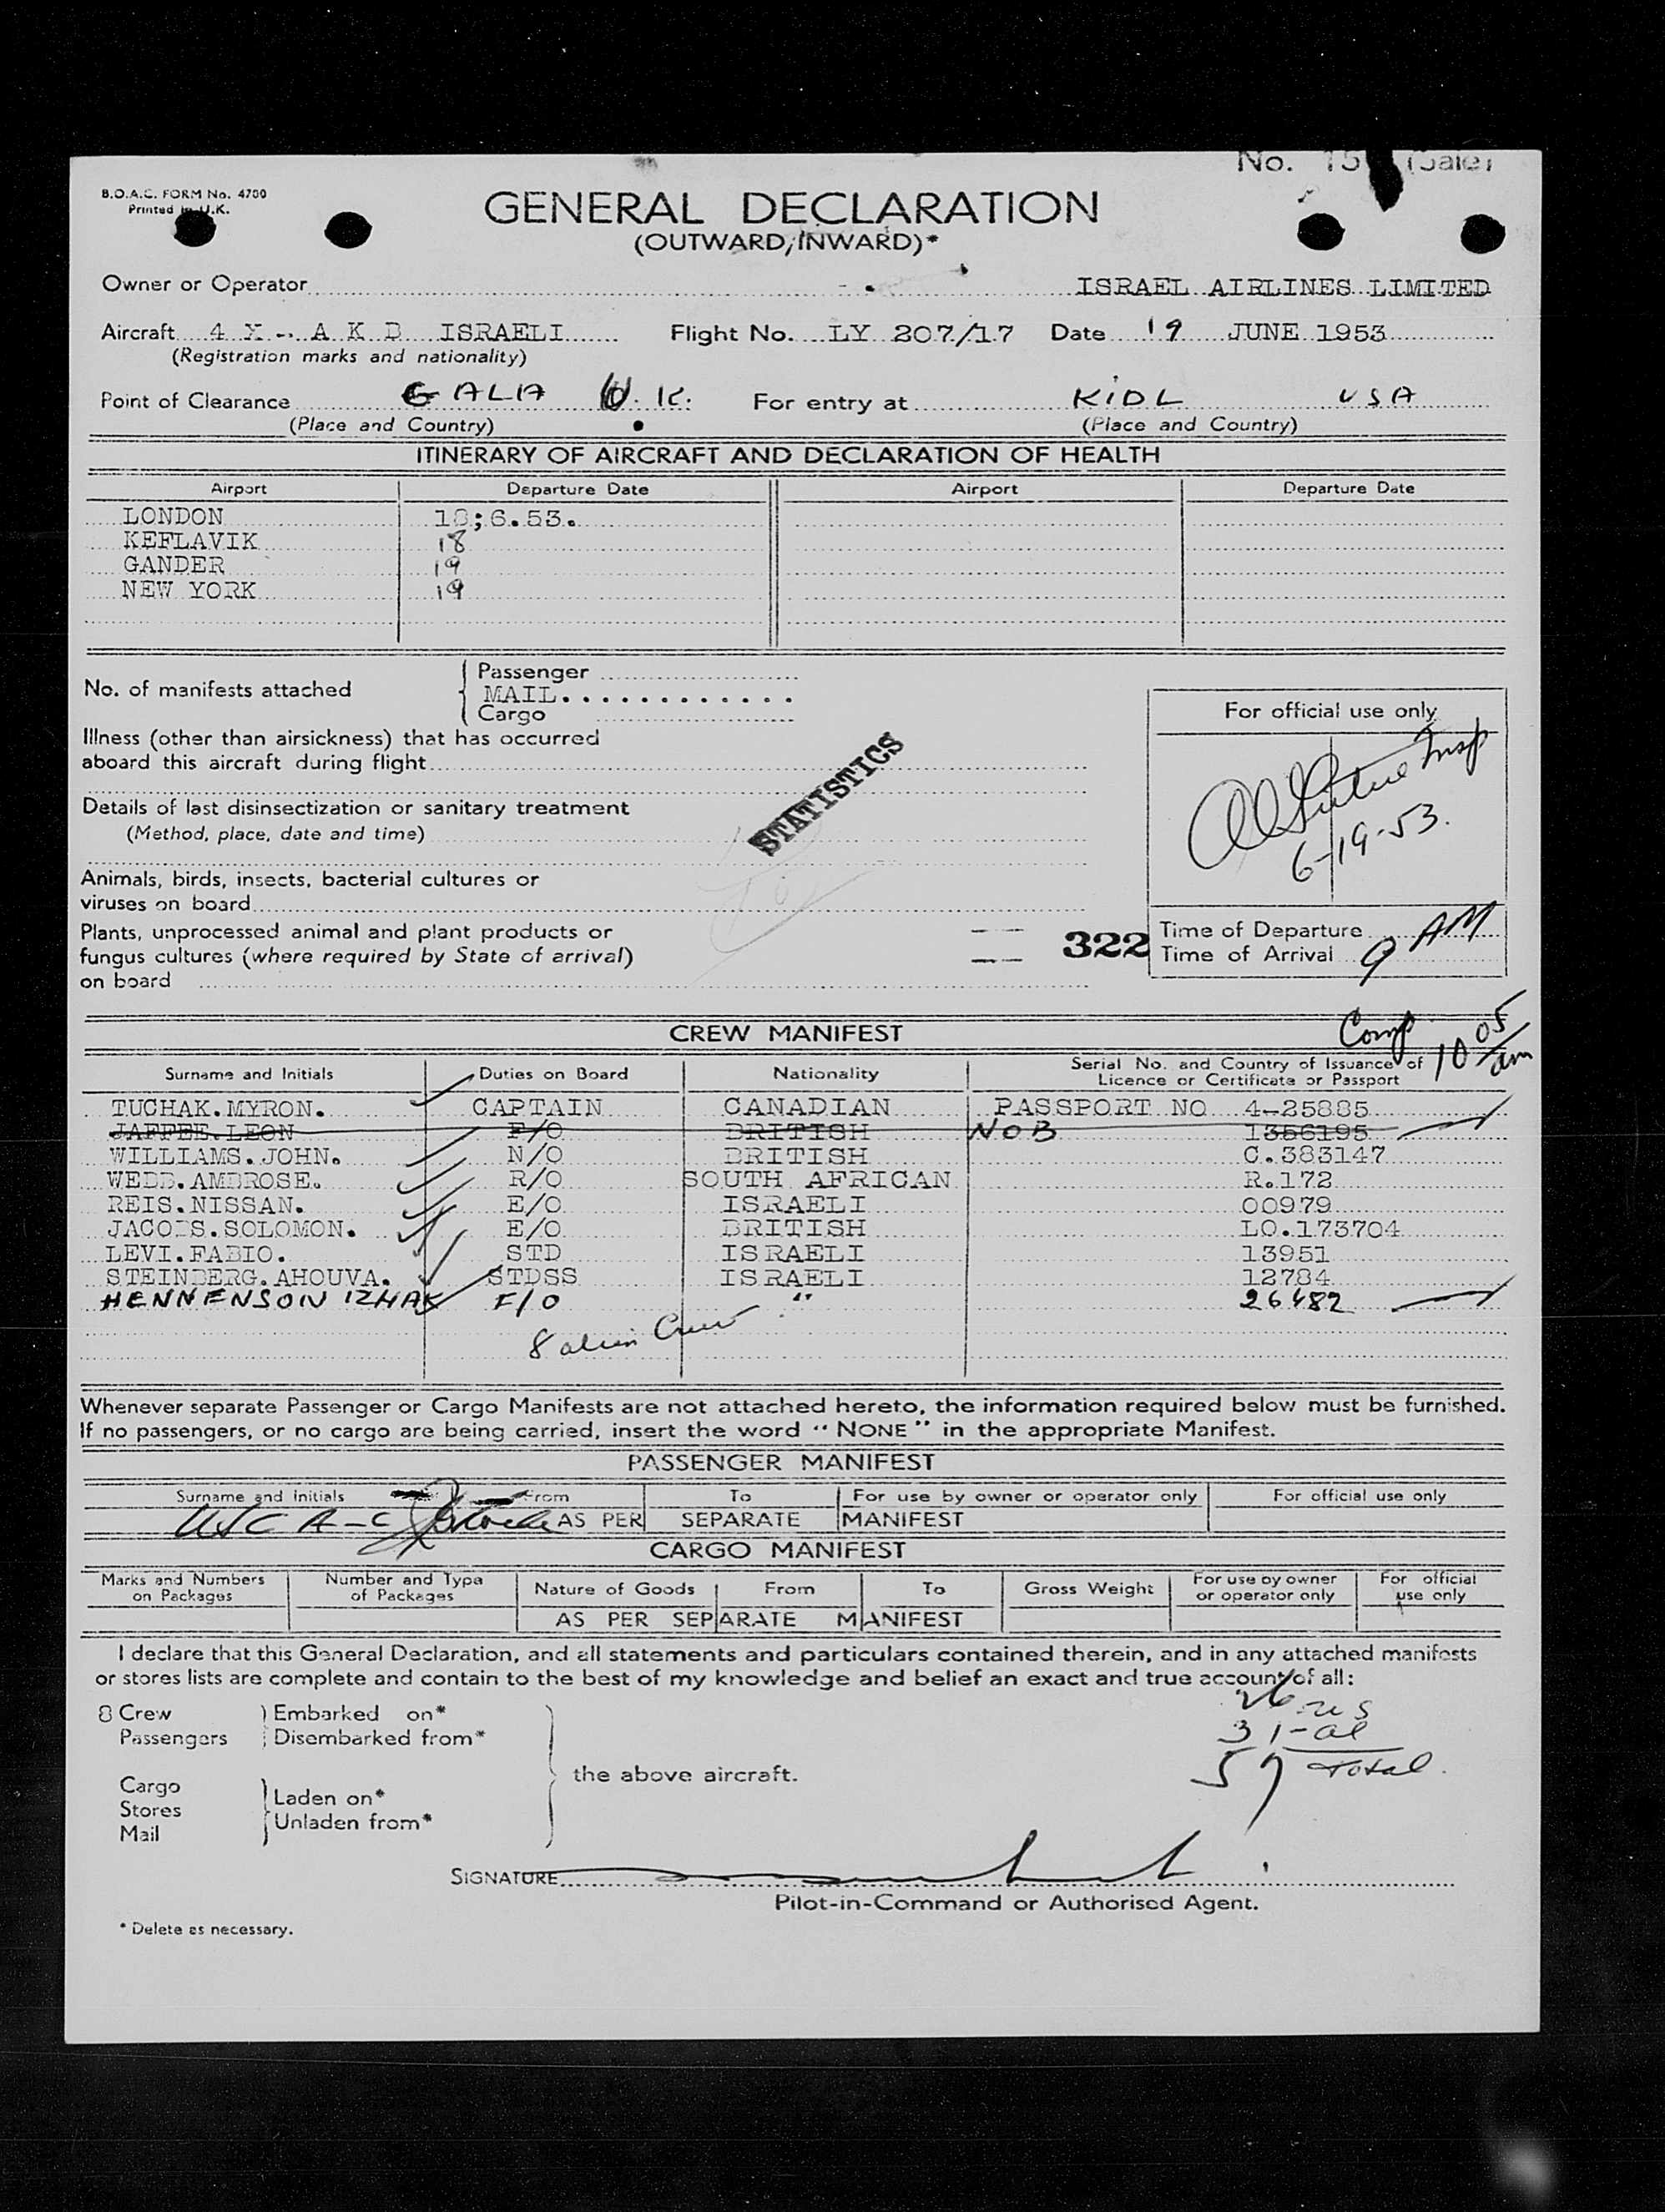 No. 15 (Sale)
B.O.A.C. FORM No. 4700
Printed in U.K.
GENERAL DECLARATION
(OUTWARD/INWARD)*
Owner or Operator ISRAEL AIRLINES LIMITED
Aircraft 4 X - A K D ISRAELI Flight No. LY 207/17 Date 19 JUNE 1953
(Registration marks and nationality)
Point of Clearance GALA U.K. For entry at KIDL USA
(Place and Country) (Place and Country)
ITINERARY OF AIRCRAFT AND DECLARATION OF HEALTH
Airport Departure Date Airport Departure Date
LONDON 18;6.53.
KEFLAVIK 18
GANDER 19
NEW YORK 19
No. of manifests attached
Passenger
MAIL............
Cargo
For official use only
Insp
6-19-53.
Illness (other than airsickness) that has occurred
aboard this aircraft during flight
STATISTICS
Details of last disinsectization or sanitary treatment
(Method, place, date and time)
Animals, birds, insects, bacterial cultures or
viruses on board
Plants, unprocessed animal and plant products or
fungus cultures (where required by State of arrival)
on board
322
Time of Departure
Time of Arrival 9 AM
Comp 10 05/am
CREW MANIFEST
Surname and Initials Duties on Board Nationality Serial No. and Country of Issuance of
Licence or Certificate or Passport
TUCHAK.MYRON. CAPTAIN CANADIAN PASSPORT NO 4-25885
JAFFEE.LEON F/O BRITISH NOB 1356195
WILLIAMS.JOHN. N/O BRITISH C.383147
WEBB.AMBROSE. R/O SOUTH AFRICAN R.172
REIS.NISSAN. E/O ISRAELI 00979
JACOBS.SOLOMON. E/O BRITISH LO.173704
LEVI.FABIO. STD ISRAELI 13951
STEINBERG.AHOUVA. STDSS ISRAELI 12784
HENNENSON IZHAK F/O " 26482
8 alien Crew
Whenever separate Passenger or Cargo Manifests are not attached hereto, the information required below must be furnished.
If no passengers, or no cargo are being carried, insert the word "NONE" in the appropriate Manifest.
PASSENGER MANIFEST
Surname and Initials From To For use by owner or operator only For official use only
AS PER SEPARATE MANIFEST
CARGO MANIFEST
Marks and Numbers on Packages Number and Type of Packages Nature of Goods From To Gross Weight For use by owner or operator only For official use only
AS PER SEPARATE MANIFEST
I declare that this General Declaration, and all statements and particulars contained therein, and in any attached manifests
or stores lists are complete and contain to the best of my knowledge and belief an exact and true account of all:
26 - us
31 - al
57 total.
8 Crew ) Embarked on*
Passengers ; Disembarked from*
the above aircraft.
Cargo
Stores
Mail
Laden on*
Unladen from*
SIGNATURE
Pilot-in-Command or Authorised Agent.
* Delete as necessary.